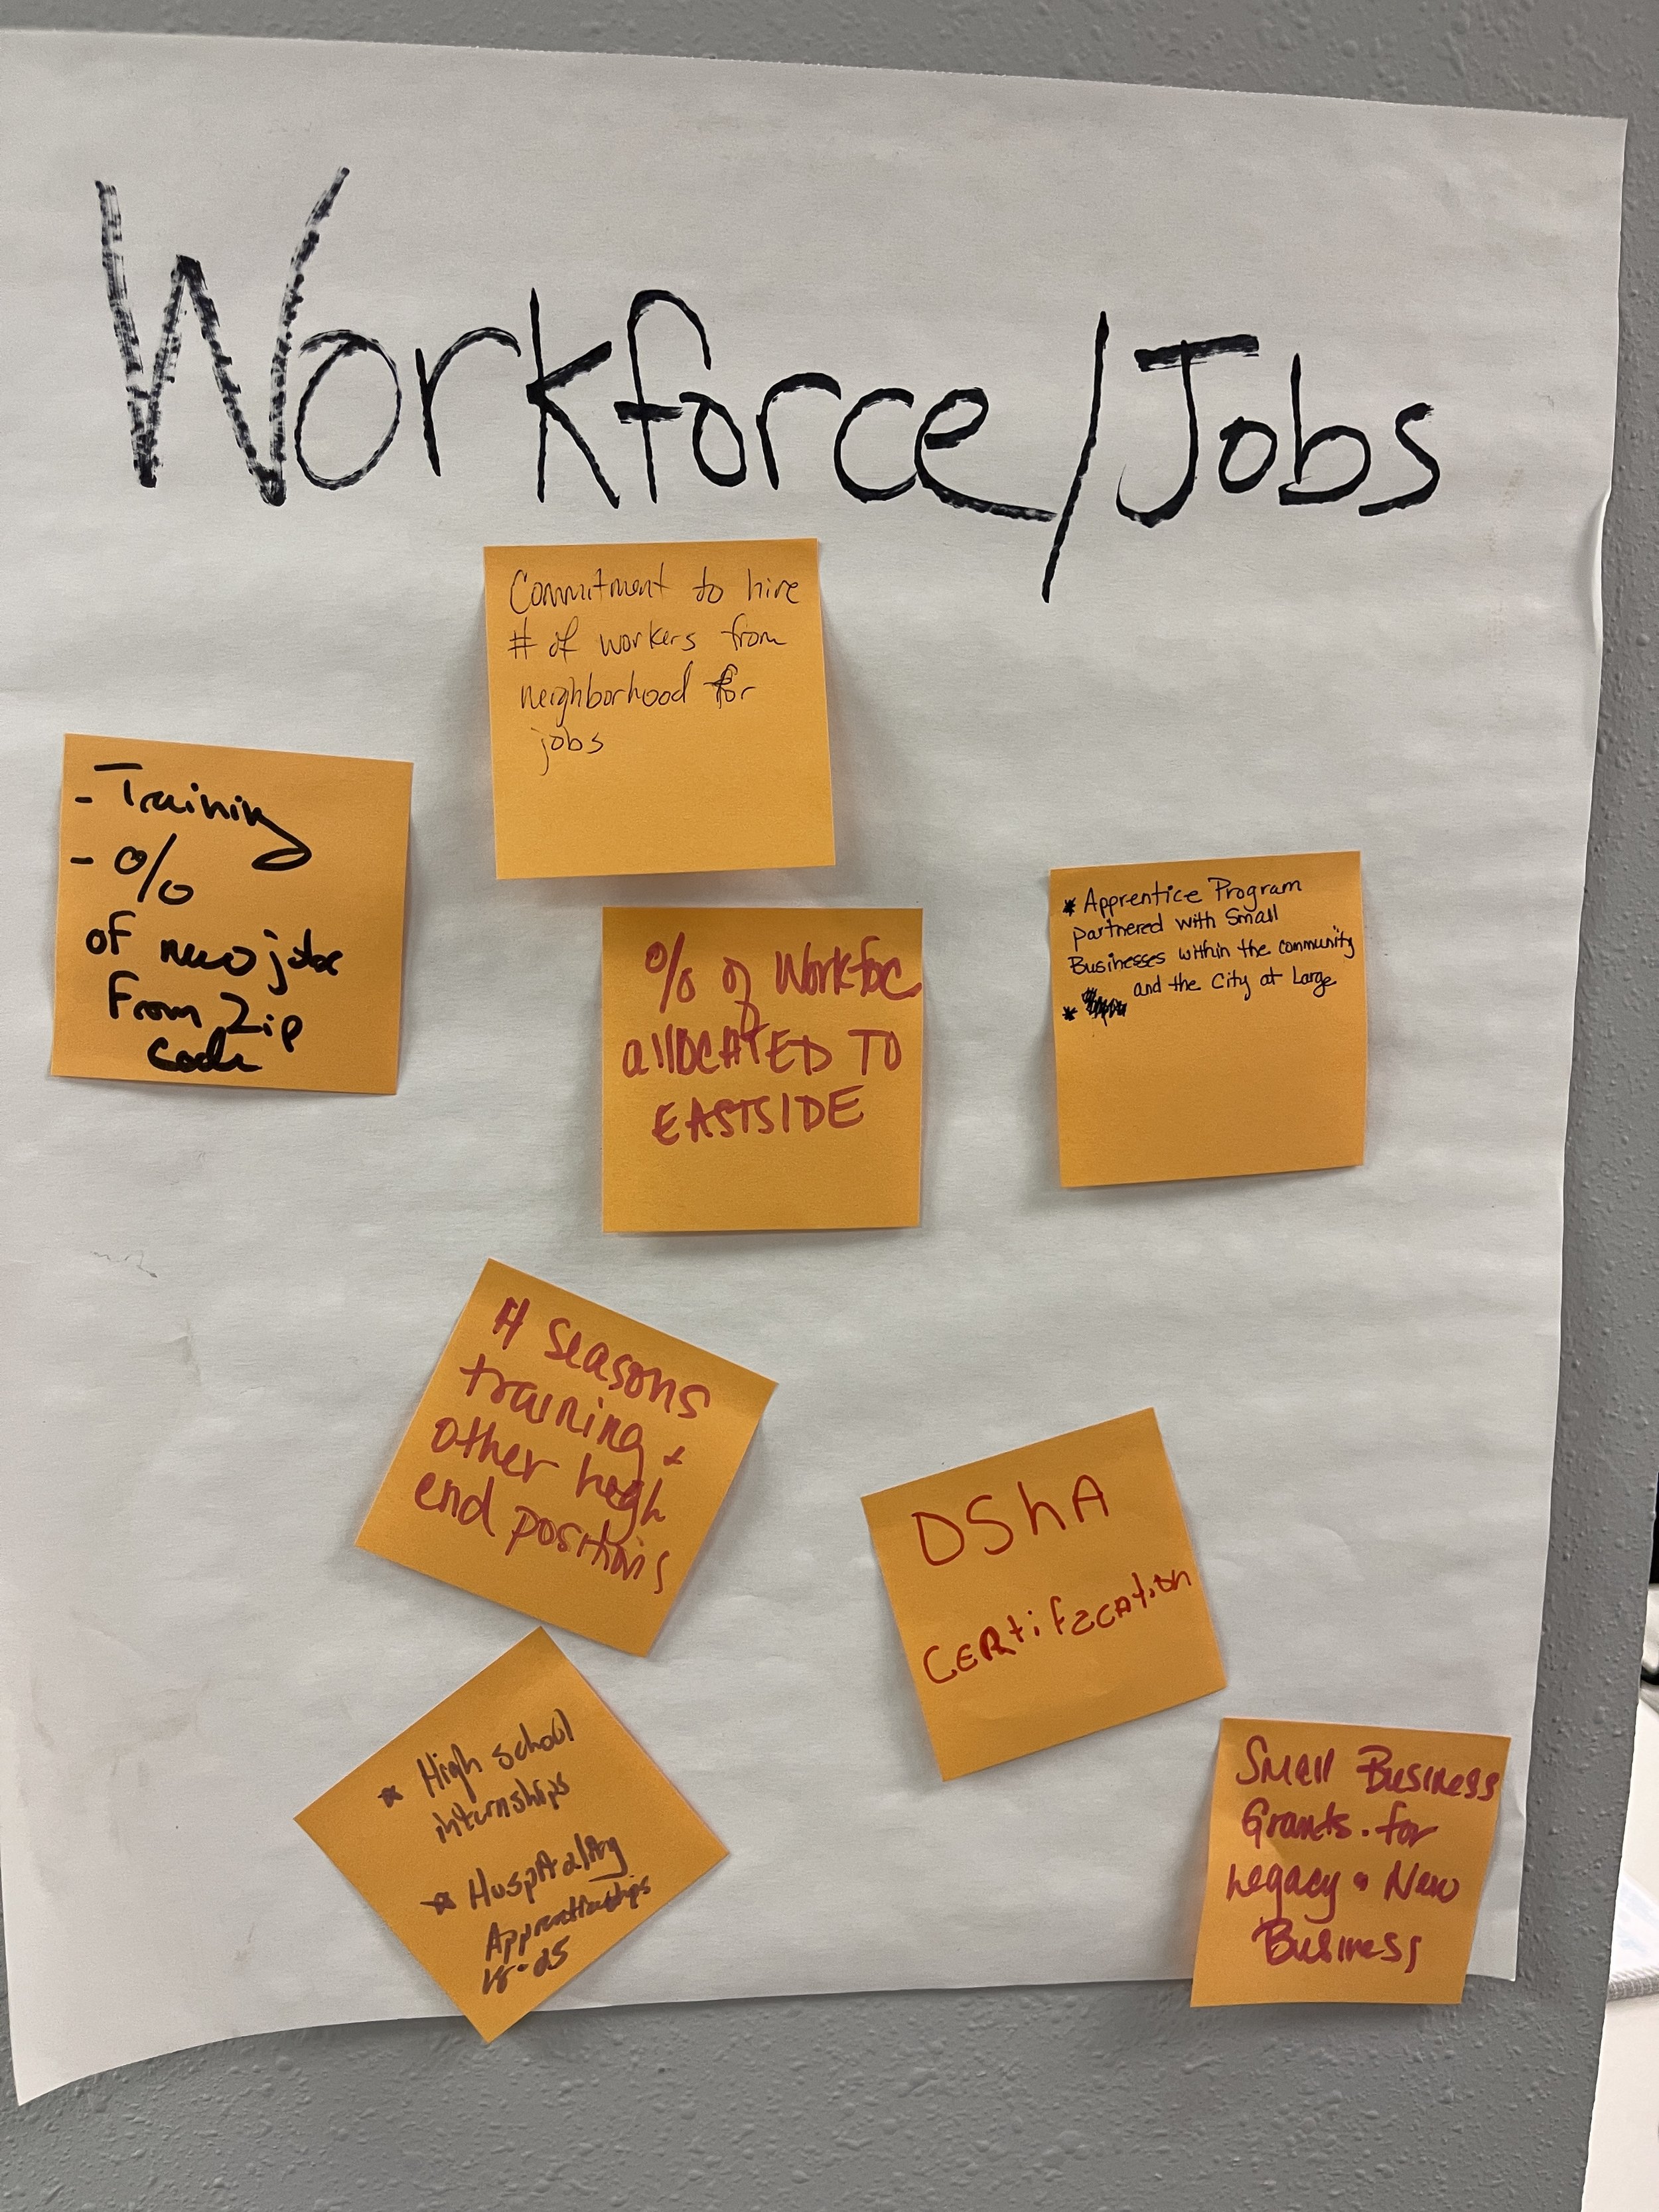 Workforce/Jobs
Commitment to hire
# of workers from
neighborhood for
jobs
- Training
- %
of new jobs
From Zip
Code
% of Workfoc
allOCATED TO
EASTSIDE
* Apprentice Program
partnered with Small
Businesses within the community
and the City at Large
*
4 Seasons
training +
other high
end positions
OShA
CERtifICAtion
* High school
internships
* Hospitality
Apprenticeships
18-25
Small Business
Grants. for
Legacy • New
Business